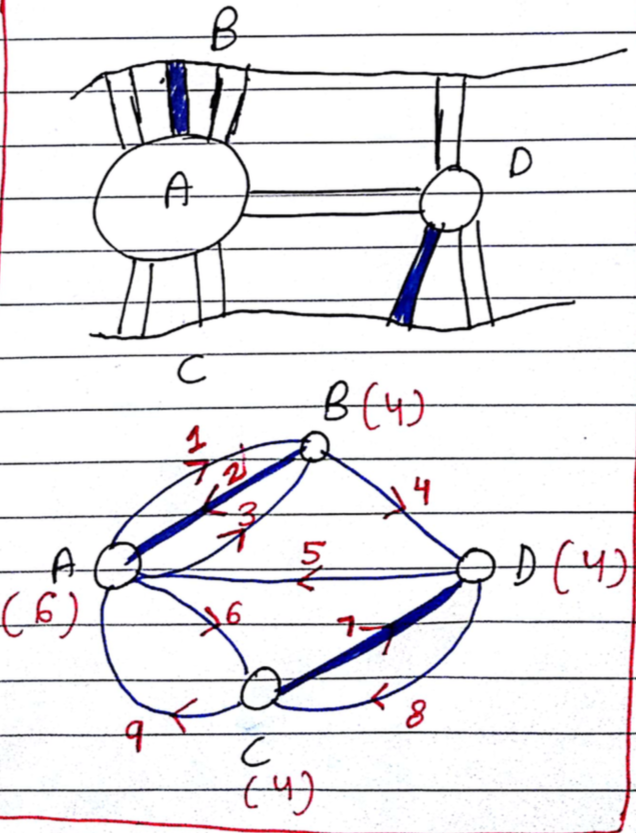 B
A
D
C
B (4)
1
2
3
4
A
5
D (4)
(6)
6
7
9
8
C
(4)